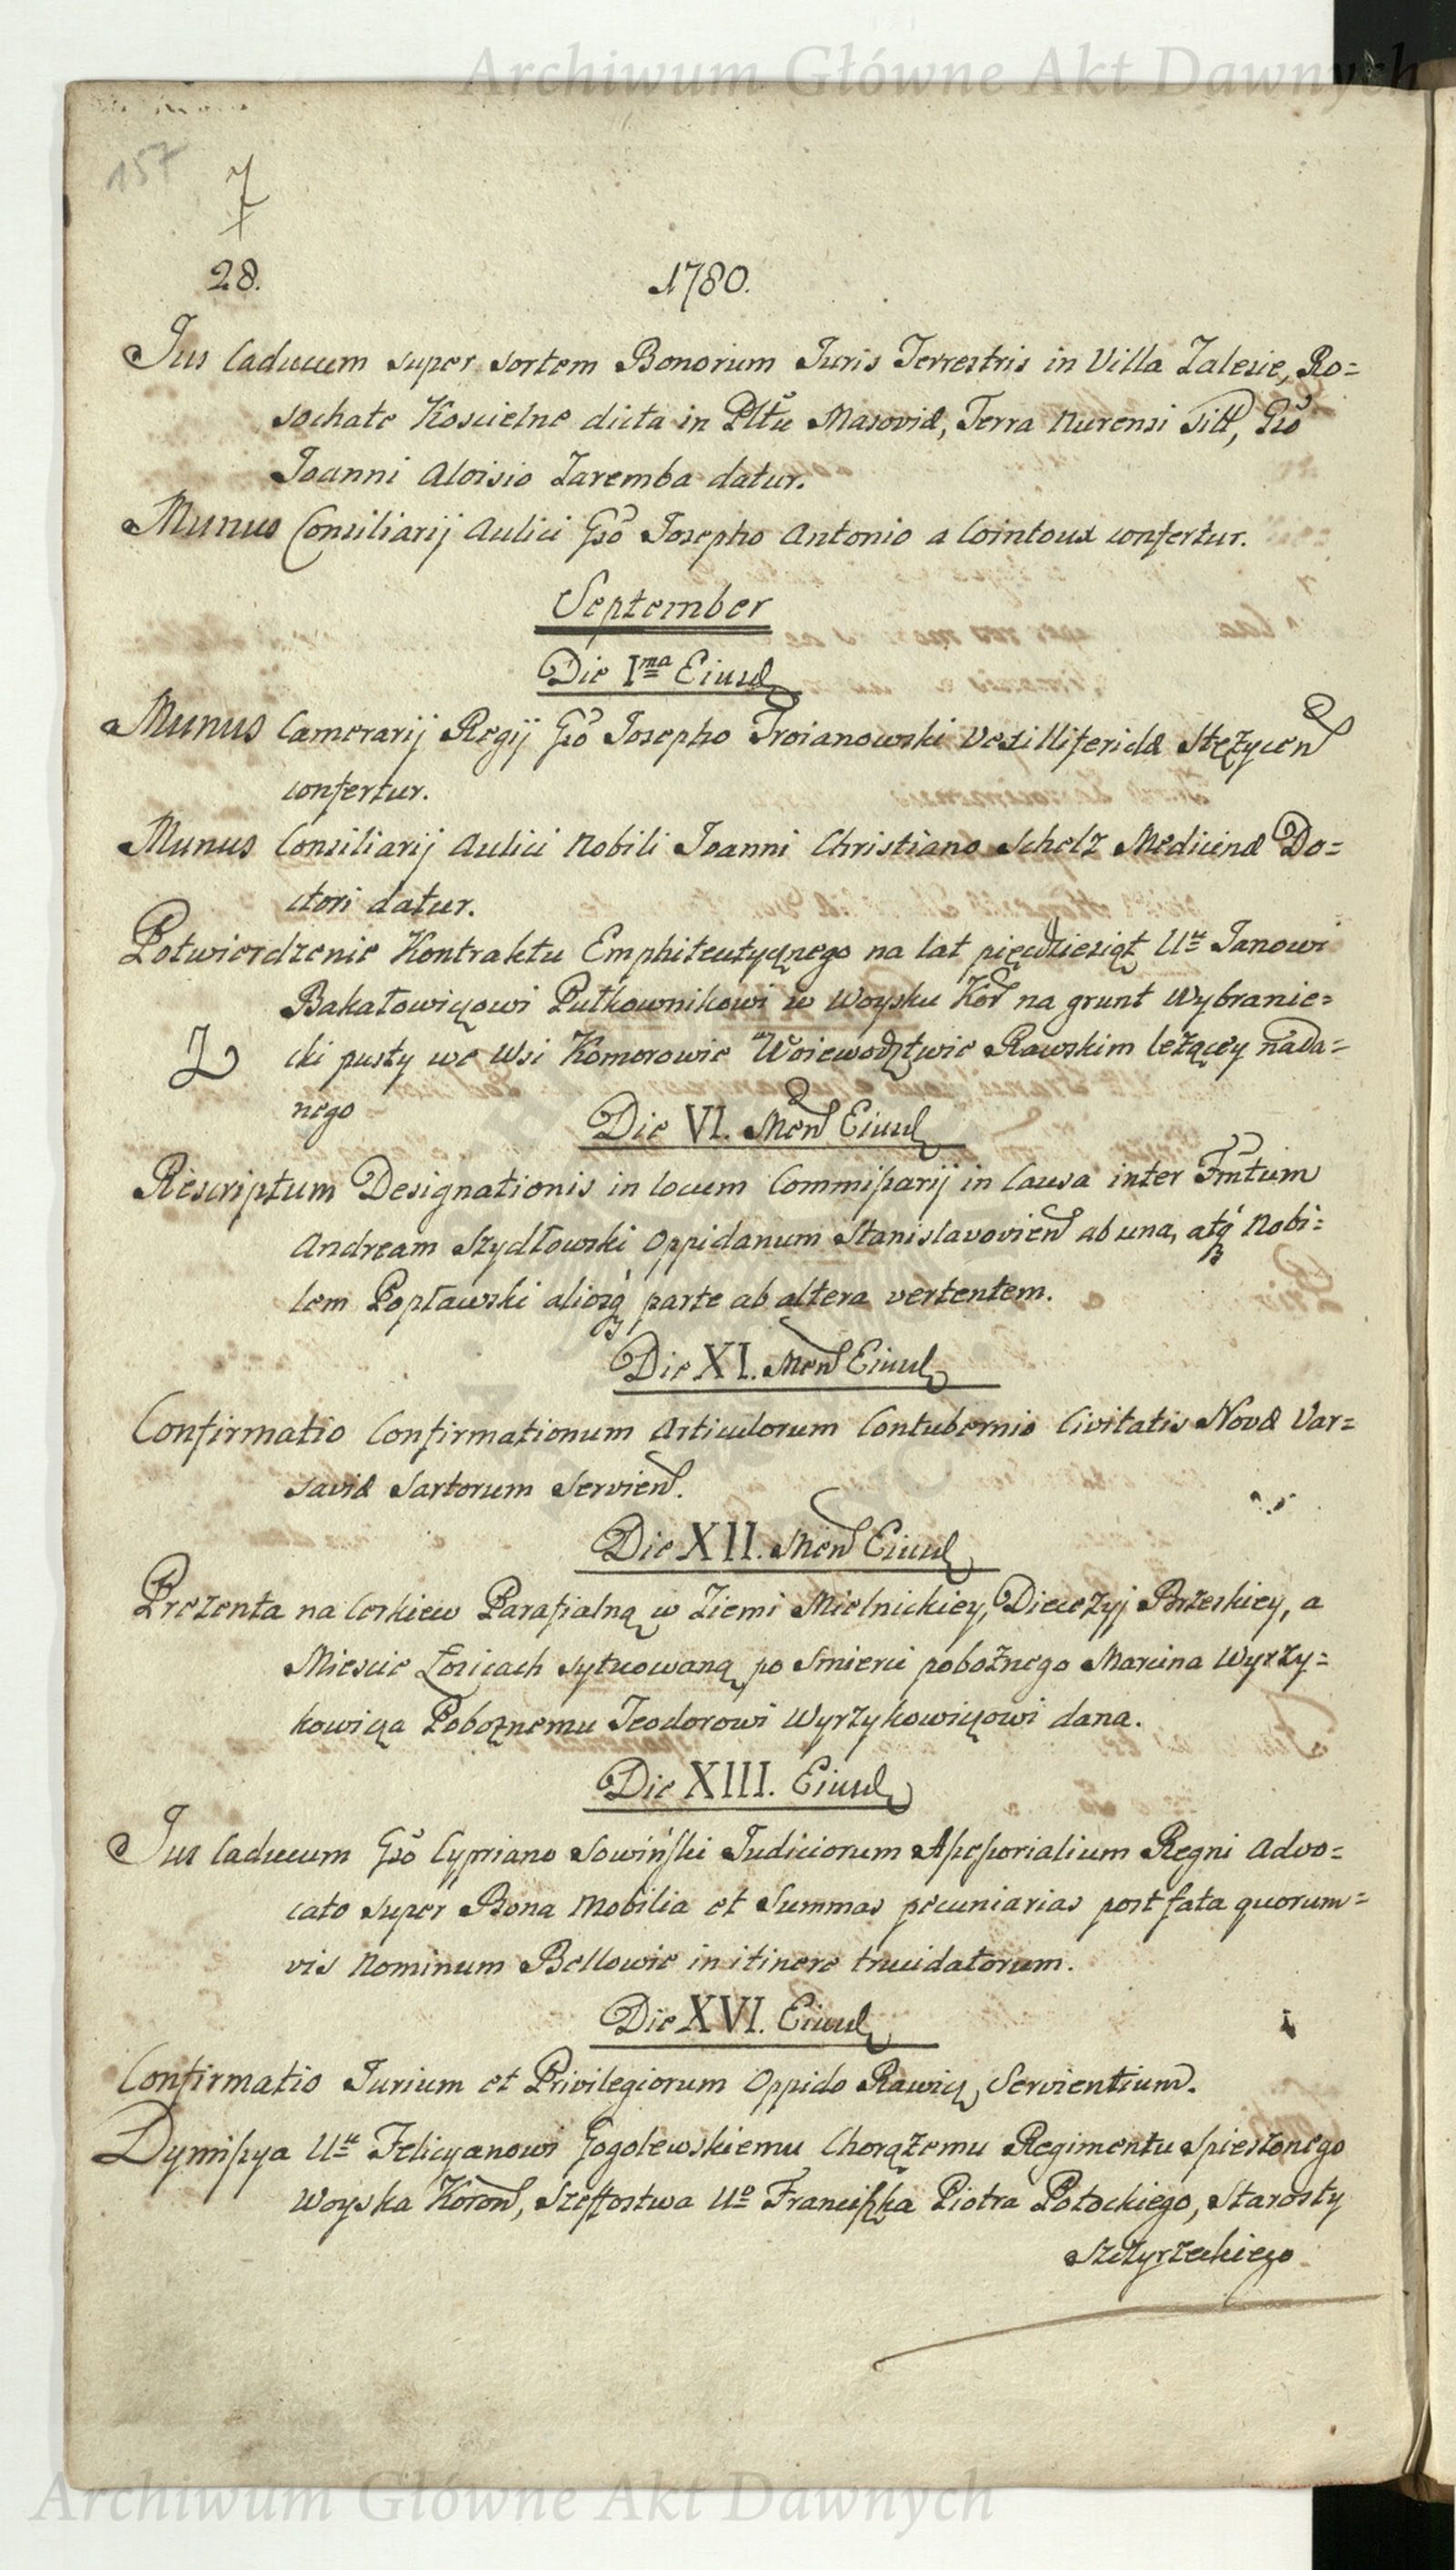 Archiwum Główne Akt Dawnych
157
7
28.
1780.
Jus Caducum super sortem Bonorum Juris Terrestris in Villa Zalesie, Ro=
sochate Koscielne dicta in Plŧŭ Masoviæ, Terra Nurensi sitt, Gŝo
Joanni Aloisio Zaremba datur.
Munus Consiliarij Aulici Gŝo Josepho Antonio a Cointoux confertur.
September
Die Ima Eiusd
Munus Camerarij Regij Gŝo Josepho Troianowski Vexilliferidæ Stęzycen
confertur.
Munus Consiliarij Aulici Nobili Joanni Christiano Schelz Medicinæ Do=
ctori datur.
Potwierdzenie Kontraktu Emphiteutycznego na lat pięcdziesiąt Ur Janowi
Bakałowiczowi Pułkownikowi w Woysku Kor na grunt Wybranie=
cki pusty we Wsi Komorowie w Woiewodztwie Rawskim leżący nada=
nego
Die VI. Men Eiusd
Rescriptum Designationis in locum Commissarij in Causa inter Fmtum
Andream Szydłowski Oppidanum Stanislavovien ab una, atq Nobi=
lem Popławski aliosq parte ab altera vertentem.
Die XI. Men Eiusd
Confirmatio Confirmationum Articulorum Contubernio Civitatis Novæ Var=
saviæ Sartorum Servien.
Die XII. Men Eiusd
Prezenta na Cerkiew Parafialną w Ziemi Mielnickiey, Diecezyj Brzeskiey, a
Miescie Łosicach sytuowaną, po Smierci pobożnego Marcina Wyrzy=
kowicza Pobożnemu Teodorowi Wyrzykowiczowi dana.
Die XIII. Eiusd
Jus Caducum Gŝo Cypriano Sowiński Judiciorum Assessorialium Regni Advo=
cato super Bona Mobilia et Summas pecuniarias post fata quorum=
vis Nominum Bellowie in itinere trucidatorum.
Die XVI. Eiusd
Confirmatio Jurium et Privilegiorum Oppido Rawicz Servientium.
Dymissya Ur Felicyanowi Gogolewskiemu Chorążemu Regimentu Spieszonego
Woyska Koron, Szeffostwa Uo Franciszka Piotra Potockiego, Starosty
Szczyrzeckiego
Archiwum Główne Akt Dawnych